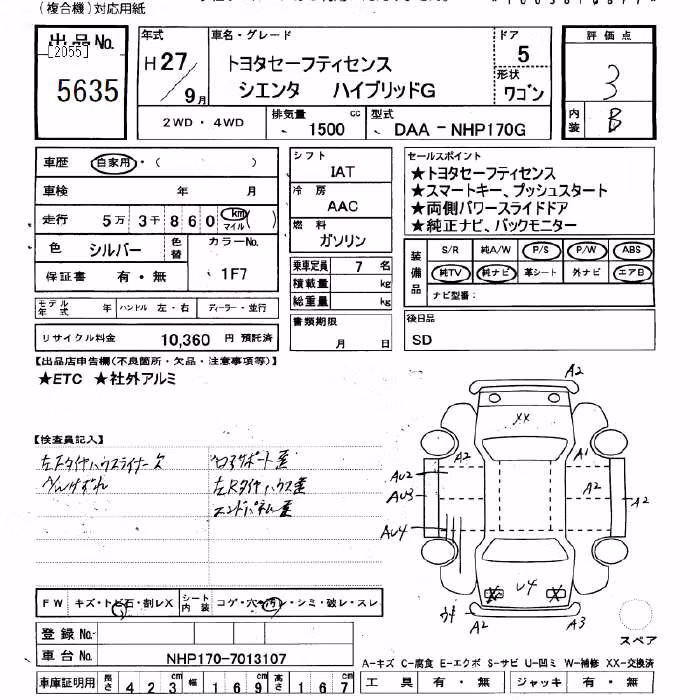 (複合機)対応用紙
出品No.
[2055]
5635
年式
H27/9月
車名・グレード
トヨタセーフティセンス
シエンタ ハイブリッドG
ドア
5
形状
ワゴン
2WD・4WD
排気量
1500 cc
型式
DAA-NHP170G
評価点
3
内装
B
車歴 自家用・( )
車検 年 月
走行 5万3千860 km マイル ( )
色 シルバー 色替
カラーNo.
1F7
保証書 有・無
モデル年式 年 ハンドル 左・右 ディーラー・並行
リサイクル料金 10,360 円 預託済
シフト
IAT
冷房
AAC
燃料
ガソリン
乗車定員 7 名
積載量 kg
総重量 kg
書類期限
月 日
セールスポイント
★トヨタセーフティセンス
★スマートキー、プッシュスタート
★両側パワースライドドア
★純正ナビ、バックモニター
装備品
S/R 純A/W P/S P/W ABS
純TV 純ナビ 革シート 外ナビ エアB
ナビ型番:
後日品
SD
【出品店申告欄(不良箇所・欠品・注意事項等)】
★ETC ★社外アルミ
【検査員記入】
左Fタイヤハウスライナー欠
左Rタイヤハウス歪
エンドパネル歪
A2
XX
A2
A1
AU2
AU3
A2
A2
AU4
U4
X
X
A2
A3
スペア
FW キズ・トビ石・割レX シート内装 コゲ・穴・汚レ・シミ・破レ・スレ
登録No.
車台No. NHP170-7013107
車庫証明用 長さ 423cm 幅 169cm 高さ 167cm
A-キズ C-腐食 E-エクボ S-サビ U-凹ミ W-補修 XX-交換済
工具 有・無 ジャッキ 有・無